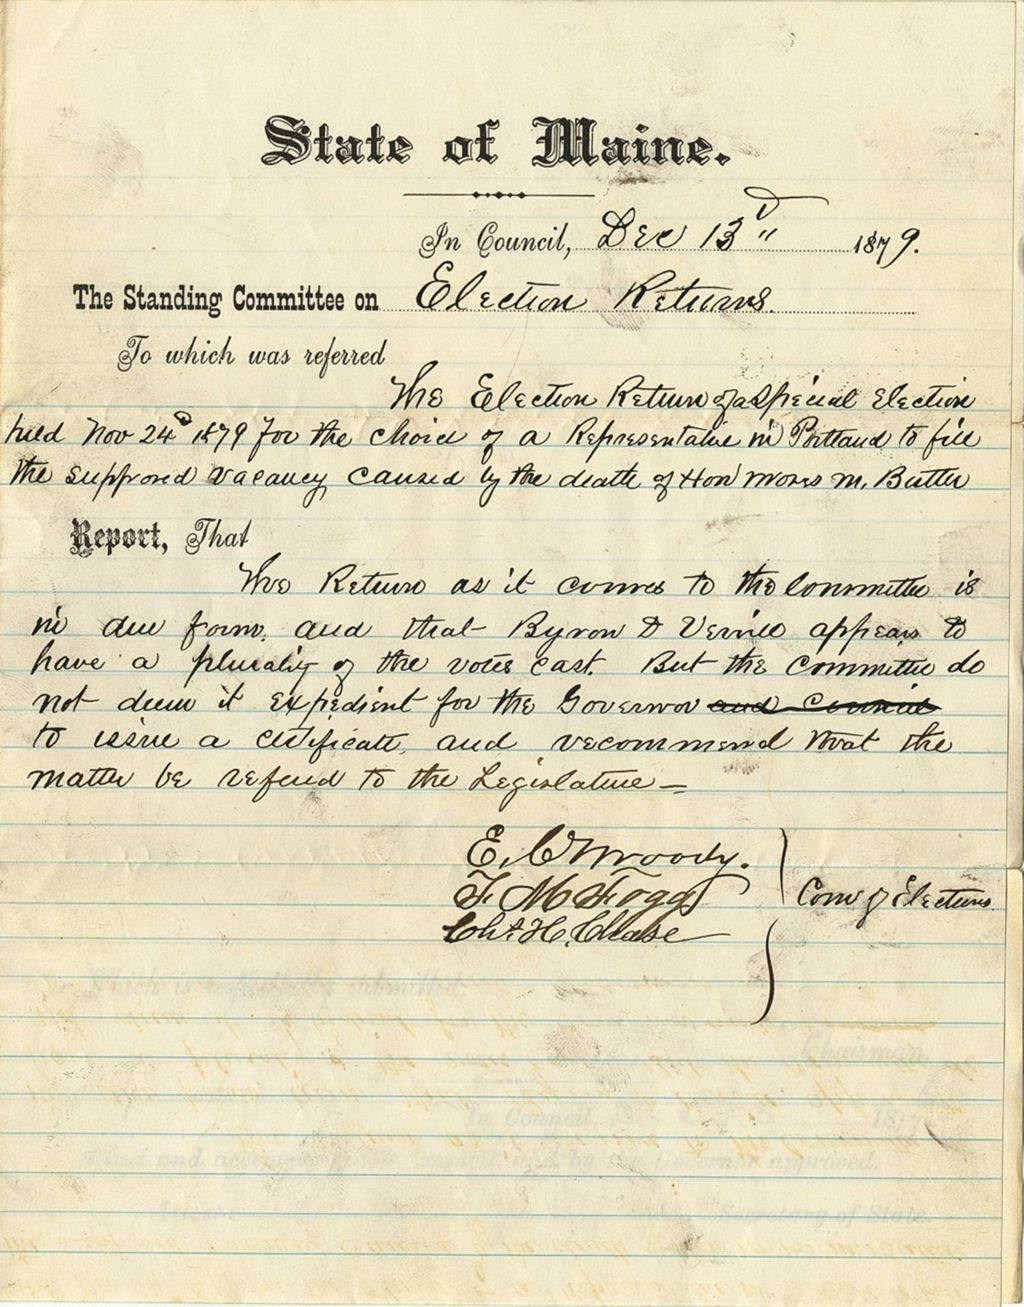 State of Maine.
In Council, Dec 13" 1879.
The Standing Committee on Election Returns.
To which was referred
The Election Return of a Special Election
held Nov 24 1879 for the choice of a Representative in Portland to fill
the supposed vacancy caused by the death of Hon Moses M. Butler
Report, That
The Return as it comes to the Committee is
in due form, and that Byron D Verrill appears to
have a plurality of the votes cast. But the Committee do
not deem it expedient for the Governor and Council
to issue a certificate, and recommend that the
matter be referred to the Legislature —
E. C. Moody.
F. M. Fogg
Chs. H. Chase
Com of Elections.
Which is respectfully submitted.
Chairman.
In Council, 187
and by the Governor approved.
Secretary of State.